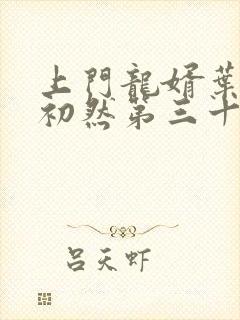 上門龍婿葉
初然第三十
呂天虾